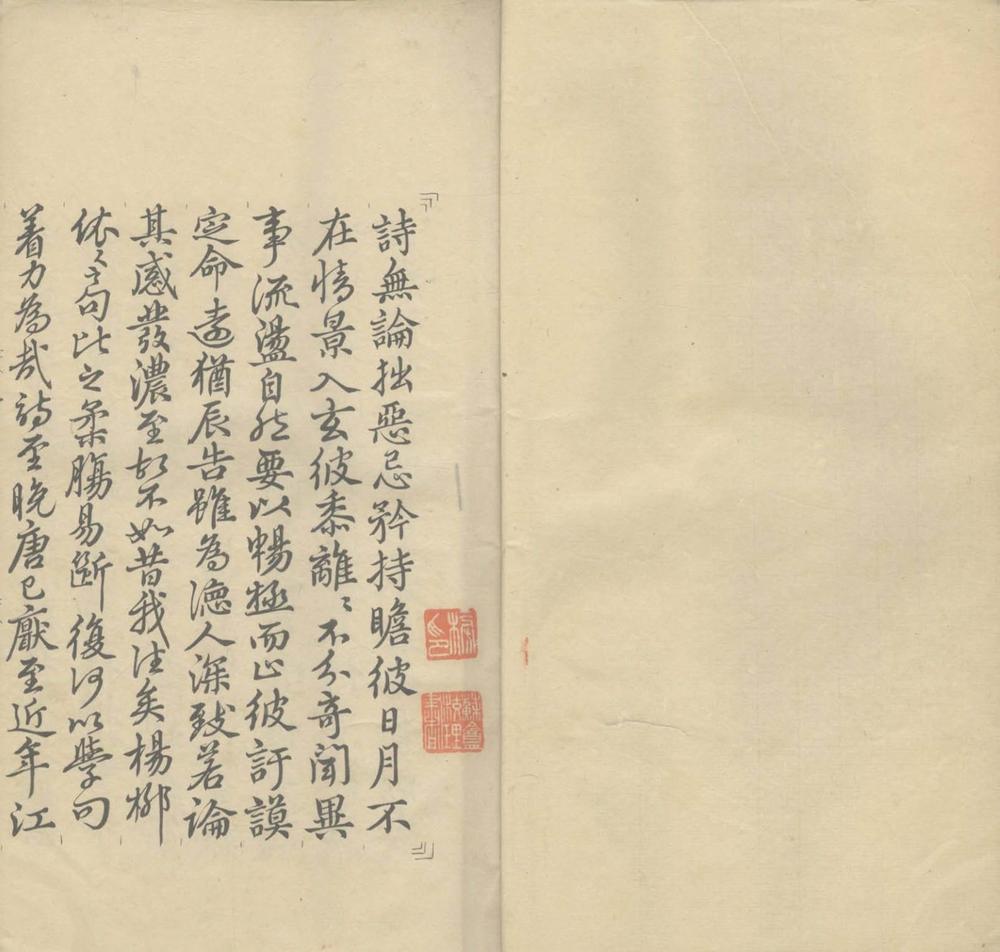 詩無論拙惡忌矜持瞻彼日月不
在情景入玄彼黍離〻不分奇聞異
事流盪自然要以暢極而止彼訏謨
定命遠猶辰告雖為德人深致若論
其感發濃至故不如昔我往矣楊柳
依〻之句比之柔腸易斷復何以學句
着力為哉詩至晚唐已厭至近年江